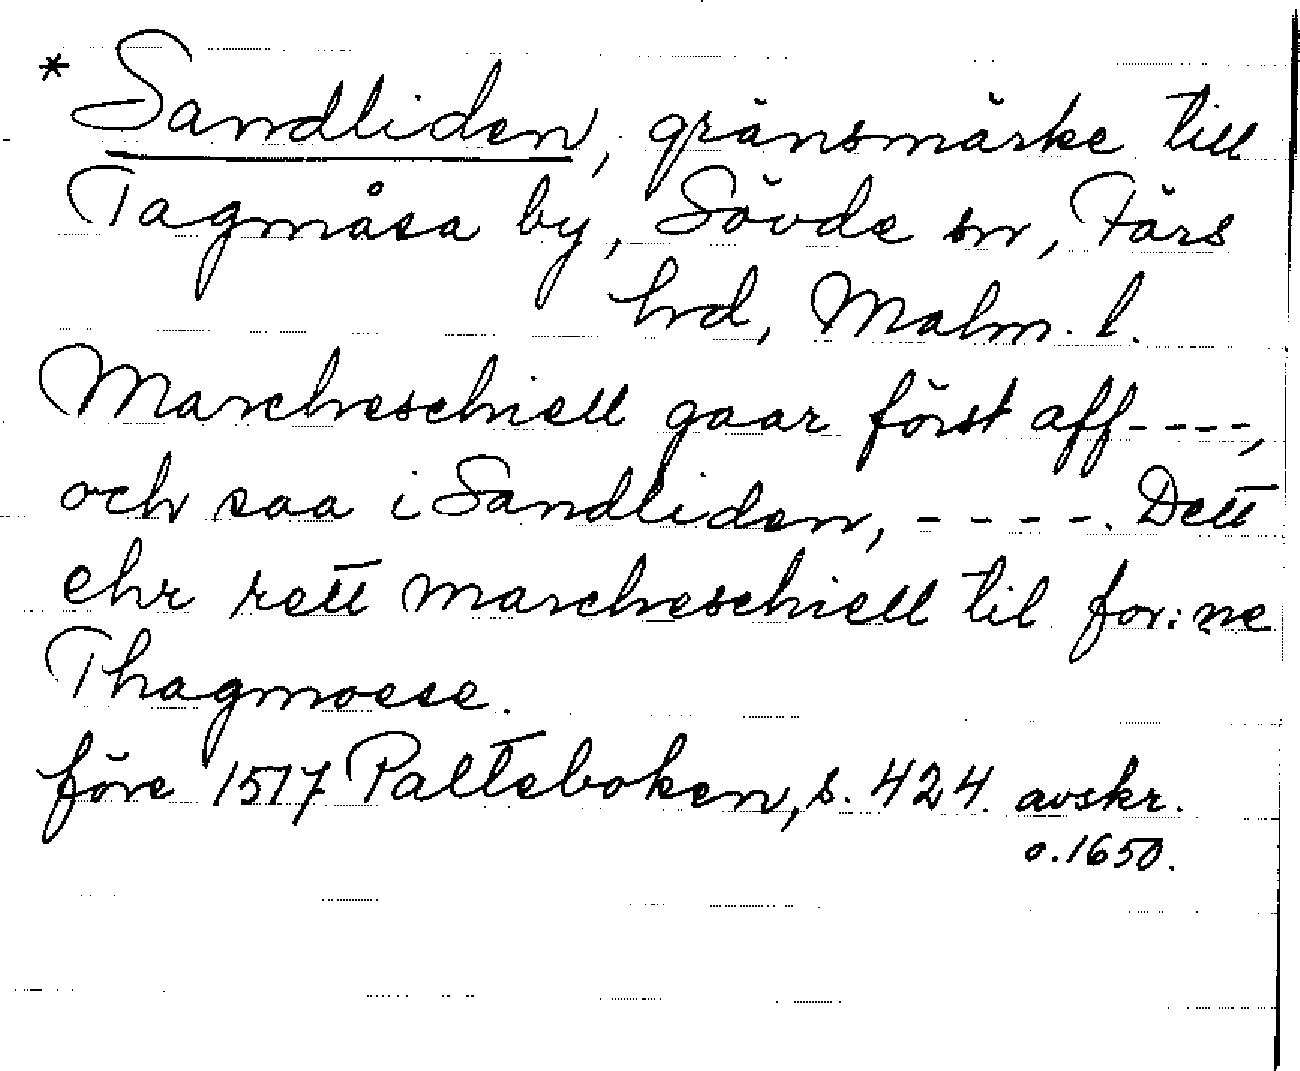 * Sandliden, gränsmärke till
Tagmåsa by, Sövde sn, Färs
hrd, Malm. l.
Marcheschiell gaar först aff----,
och saa i Sandliden, ----. Dett
ehr rett marcheschiell til for:ne
Thagmosse.
före 1517 Palteboken, s. 424. avskr.
o. 1650.